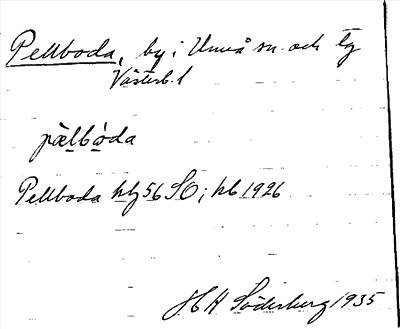 Pellboda, by i Umeå sn. och tg
Västerb. l
pälbòda
Pellboda htg 56 SO; kb 1926
H H Söderberg 1935